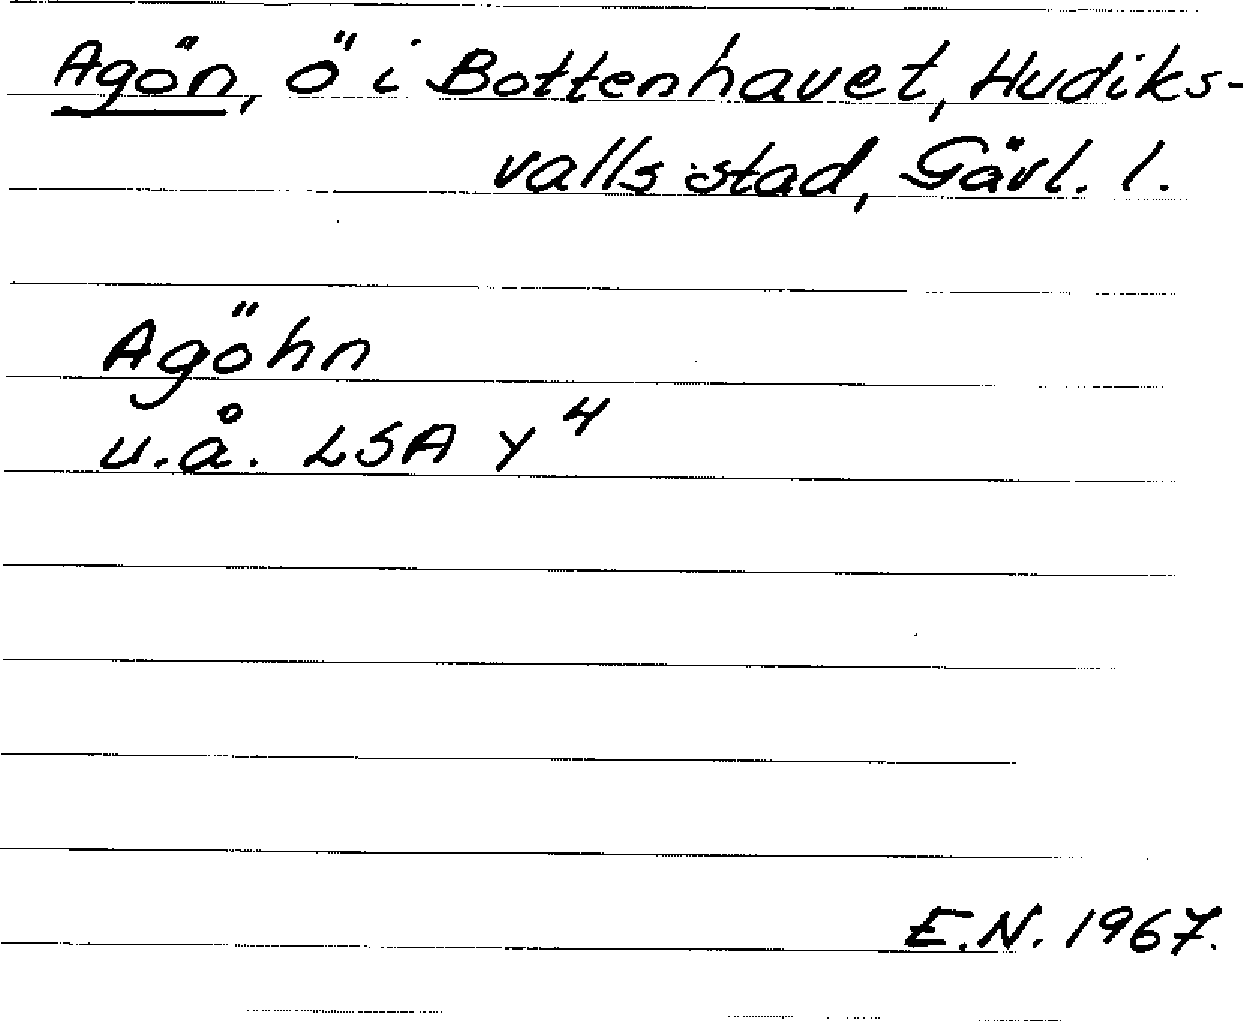 Agön, ö i Bottenhavet, Hudiks-
valls stad, Gävl. l.
Agöhn
u.å. LSA Y 4
E.N. 1967.